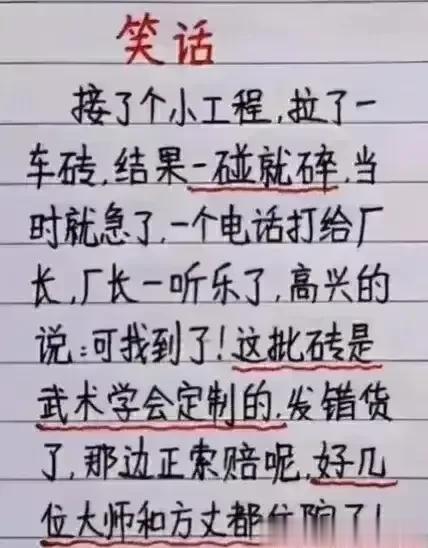 笑话
接了个小工程,拉了一
车砖,结果一碰就碎,当
时就急了,一个电话打给厂
长,厂长一听乐了,高兴的
说:可找到了!这批砖是
武术学会定制的,发错货
了,那边正索赔呢,好几
位大师和方丈都住院了!